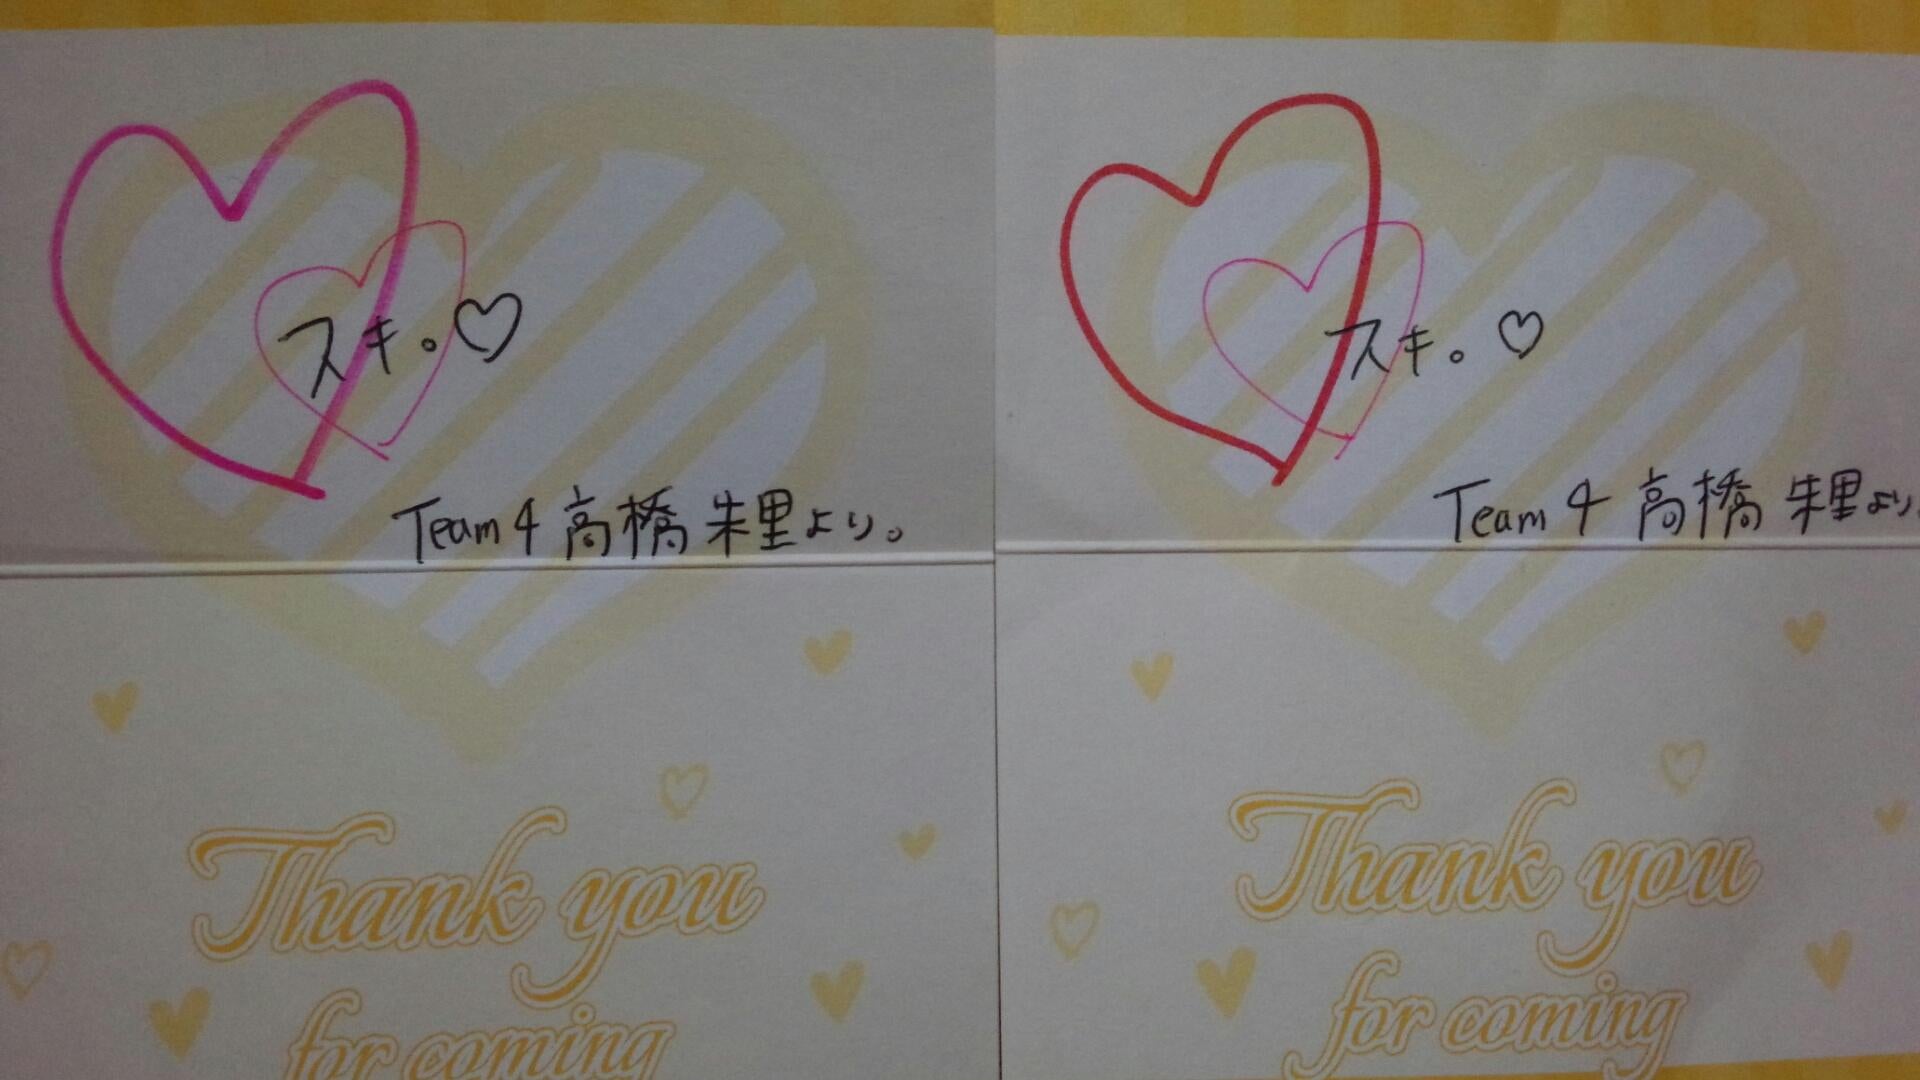 スキ。♡
Team4 高橋朱里より。
Thank you
for coming
スキ。♡
Team4 高橋朱里より。
Thank you
for coming